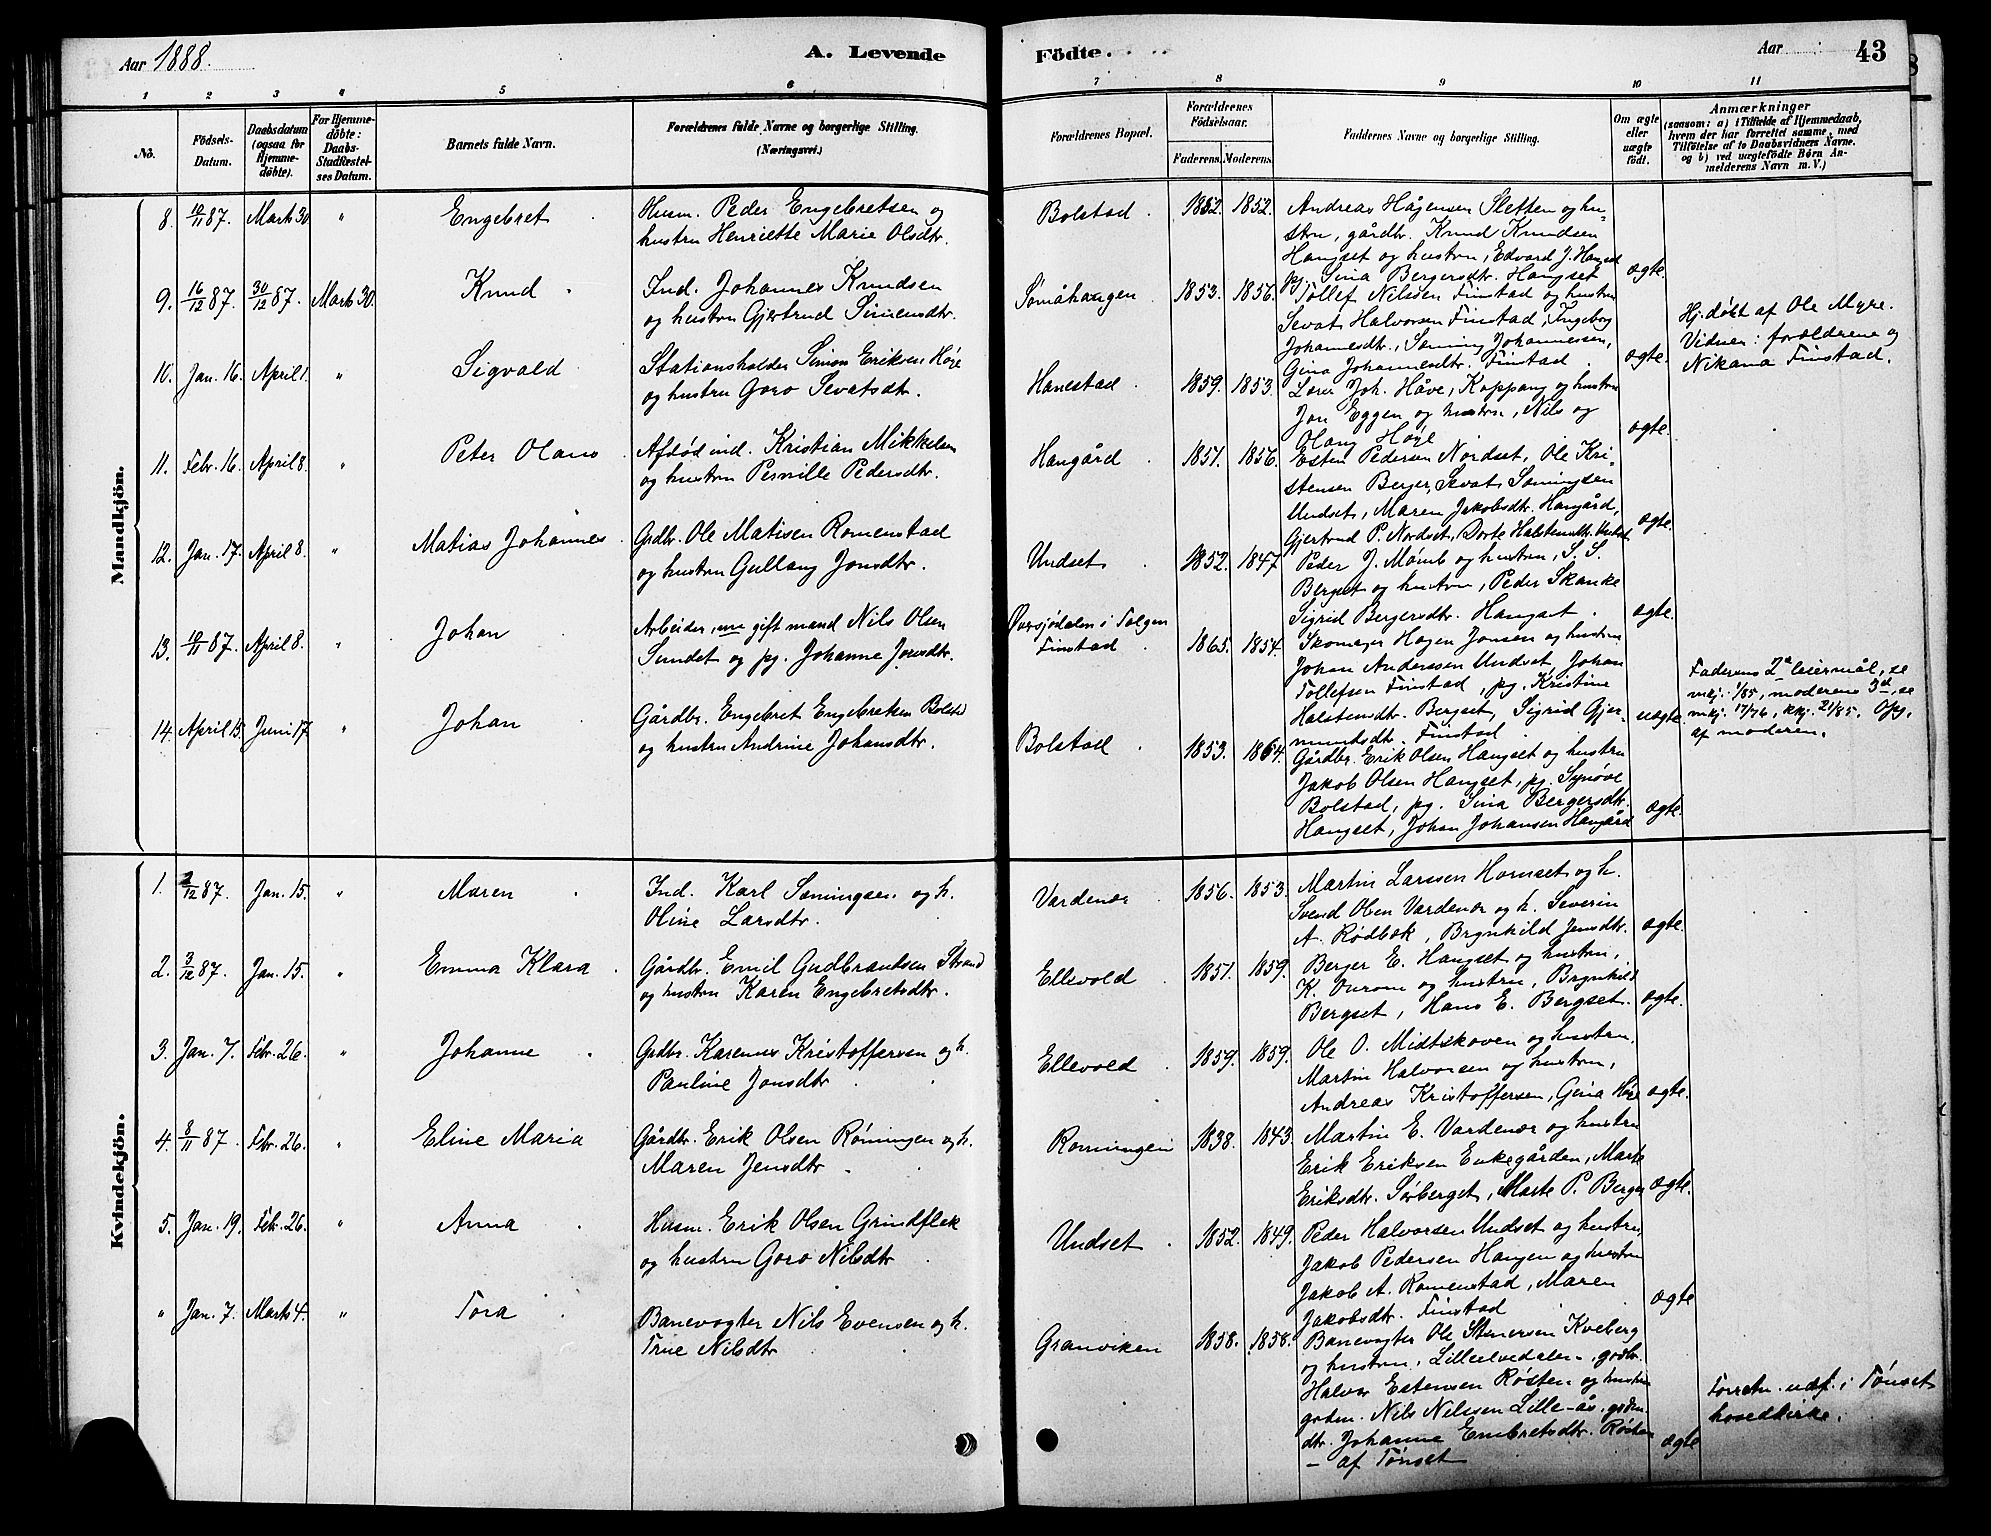 Aar 1888.
A. Levende
Födte.
Aar
43
1
2
3
4
5
6
7
8
9
10
11
No.
Födsels-
Datum.
Daabsdatum
(ogsaa for
Hjemme-
döbte).
For Hjemme-
döbte:
Daabs-
Stadfæstel-
ses Datum.
Barnets fulde Navn.
Forældrenes fulde Navne og borgerlige Stilling.
(Næringsvei.)
Forældrenes Bopæl.
Forældrenes
Födselsaar.
Faderens.
Moderens.
Faddernes Navne og borgerlige Stilling.
Om ægte
eller
uægte
födt.
Anmærkninger
(saasom: a) i Tilfælde af Hjemmedaab,
hvem der har forrettet samme, med
Tilföielse af to Daabsvidners Navne.
og b) ved uægtefödte Börn An-
melderens Navn m. V.)
Mandkjön.
8. 10/11 87. Marts 30 " Engebret
Husm. Peder Engebretsen og
hustru Henriette Marie Olsdtr.
Bolstad. 1852. 1852.
Andreas Hågensen Sletten og hu-
stru, gårdbr. Knud Knudsen
Hangset og hustru, Edvard J. Hangset
pg. Sina Bergersdtr. Hangset
ægte.
9. 16/12 87. 30/12 87. Marts 30. Knud
Ind. Johannes Knudsen
og hustru Gjertrud Simensdtr.
Småhaugen 1853. 1856.
Tollef Nilssen Finstad og hustru
Sevat Halvorsen Finstad, Ingeborg
Johannesdtr., Søming Johannessen,
Gina Johannesdtr. Finstad
ægte.
Hj.døbt af Ole Myre.
Vidner: forældrene og
Nikana Finstad.
10. Jan. 16. April 1. " Sigvald
Stationsholder Simon Eriksen Høye
og hustru Goro Sevatsdtr.
Hanestad 1859. 1853.
Joh. Håve, Koppang og hustru
Jon Eggen og hustru, Nils og
Olaug Høye
ægte.
11. Febr. 16. April 8. " Peter Olaus
Afdød ind. Kristian Mikkelsen
og hustru Pernille Pedersdtr.
Hangård 1851. 1856.
Esten Pedersen Nordset, Ole Kri-
stensen Berger, Sevat Sømingsen
Undset, Maren Jakobsdtr. Hangård,
Gjertrud P. Nordset, Dorte Halstensdtr. Undset
ægte.
12. Jan. 17. April 8. " Matias Johannes
Grdbr. Ole Matisen Romenstad
og hustru Gullaug Jonsdtr.
Undset 1852. 1847
Peder J. Mømb og hustru, S. S.
Berget og hustru, Peder Skanke
Sigrid Bergersdtr. Hangset.
ægte.
13. 10/11 87. April 8. " Johan
Arbeider, nu gift mand Nils Olsen
Sundet og pg. Johanne Jonsdtr.
Øversjødalen i Tolgen
Finstad 1865. 1854.
Skomager Hagen Jonsen og hustru
Johan Anderssen Undset, Johan
Tollefsen Finstad, pg. Kristine
Halstensdtr. Bergset, Sigrid Gjer-
mundsdtr. Finstad.
uægte
Faderens 2det leiermål, se
mkj. 1/85, moderens 3d, se
mkj. 17/76, kkj. 21/85. Opg.
af moderen.
14. April 15. Juni 17. " Johan
Gårdbr. Engebret Engebretsen Bolstad
og hustru Andrine Johansdtr.
Bolstad 1853. 1864.
Gårdbr. Erik Olsen Hangset og hustru
Jakob Olsen Hangset, pg. Synøve
Bolstad, pg. Sina Bergersdtr.
Hangset, Johan Johansen Hangård
ægte.
Kvindekjön.
1. 2/12 87. Jan. 15. " Maren
Ind. Karl Sømingsen og h.
Oline Larsdtr.
Vardenær 1856. 1853.
Martin Larssen Hornset og h.
Svend Olsen Vardenær og h. Severin
A. Rødbæk, Brynhild Jensdtr.
ægte.
2. 3/12 87. Jan. 15. " Emma Klara
Gårdbr. Emil Gudbrandsen Strand
og hustru Karen Engebretsdtr.
Ellevold 1851. 1859.
Berger E. Hangset og hustru,
K. Ourom og hustru, Brynhild
Bergset, Hans E. Bergset.
ægte.
3. Jan. 7. Febr. 26. " Johanne
Grdbr. Karenus Kristoffersen og h.
Pauline Jonsdtr.
Ellevold 1859. 1859.
Ole O. Midtskoven og hustru.
Martin Halvorsen og hustru,
Andreas Kristoffersen, Gina Høye
ægte.
4. 8/11 87. Febr. 26. " Eline Maria
Gårdbr. Erik Olsen Røningen og h.
Maren Jensdtr.
Romingen 1838. 1843.
Martin E. Vardenær og hustru
Erik Eriksen Enkegården, Marte
Eriksdtr. Sørberget, Marte P. Berger
ægte.
5. Jan. 19. Feb. 26. " Anna
Husm. Erik Olsen Grindflek
og hustru Goro Nilsdtr.
Undset. 1852. 1849.
Peder Halvorsen Undset og hustru,
Jakob Pedersen Haugen og hustru
Jakob A. Romenstad, Maren
Jakobsdtr. Finstad
ægte
" Jan. 7. Marts 4. " Tora
Banevogter Nils Evensen og h.
Trine Nilsdtr.
Granviken 1858. 1858.
Banevogter Ole Stenersen Kveberg
og hustru, Lilleelvedalen, grdbr.
Halvor Estensen Røsten og hustru
grdm. Nils Nilssen Lille-ås, grdm.
dtr. Johanne Embretsdtr. Røsten
– af Tønset
ægte
Forretn. udf. i Tønset
hovedkirke.